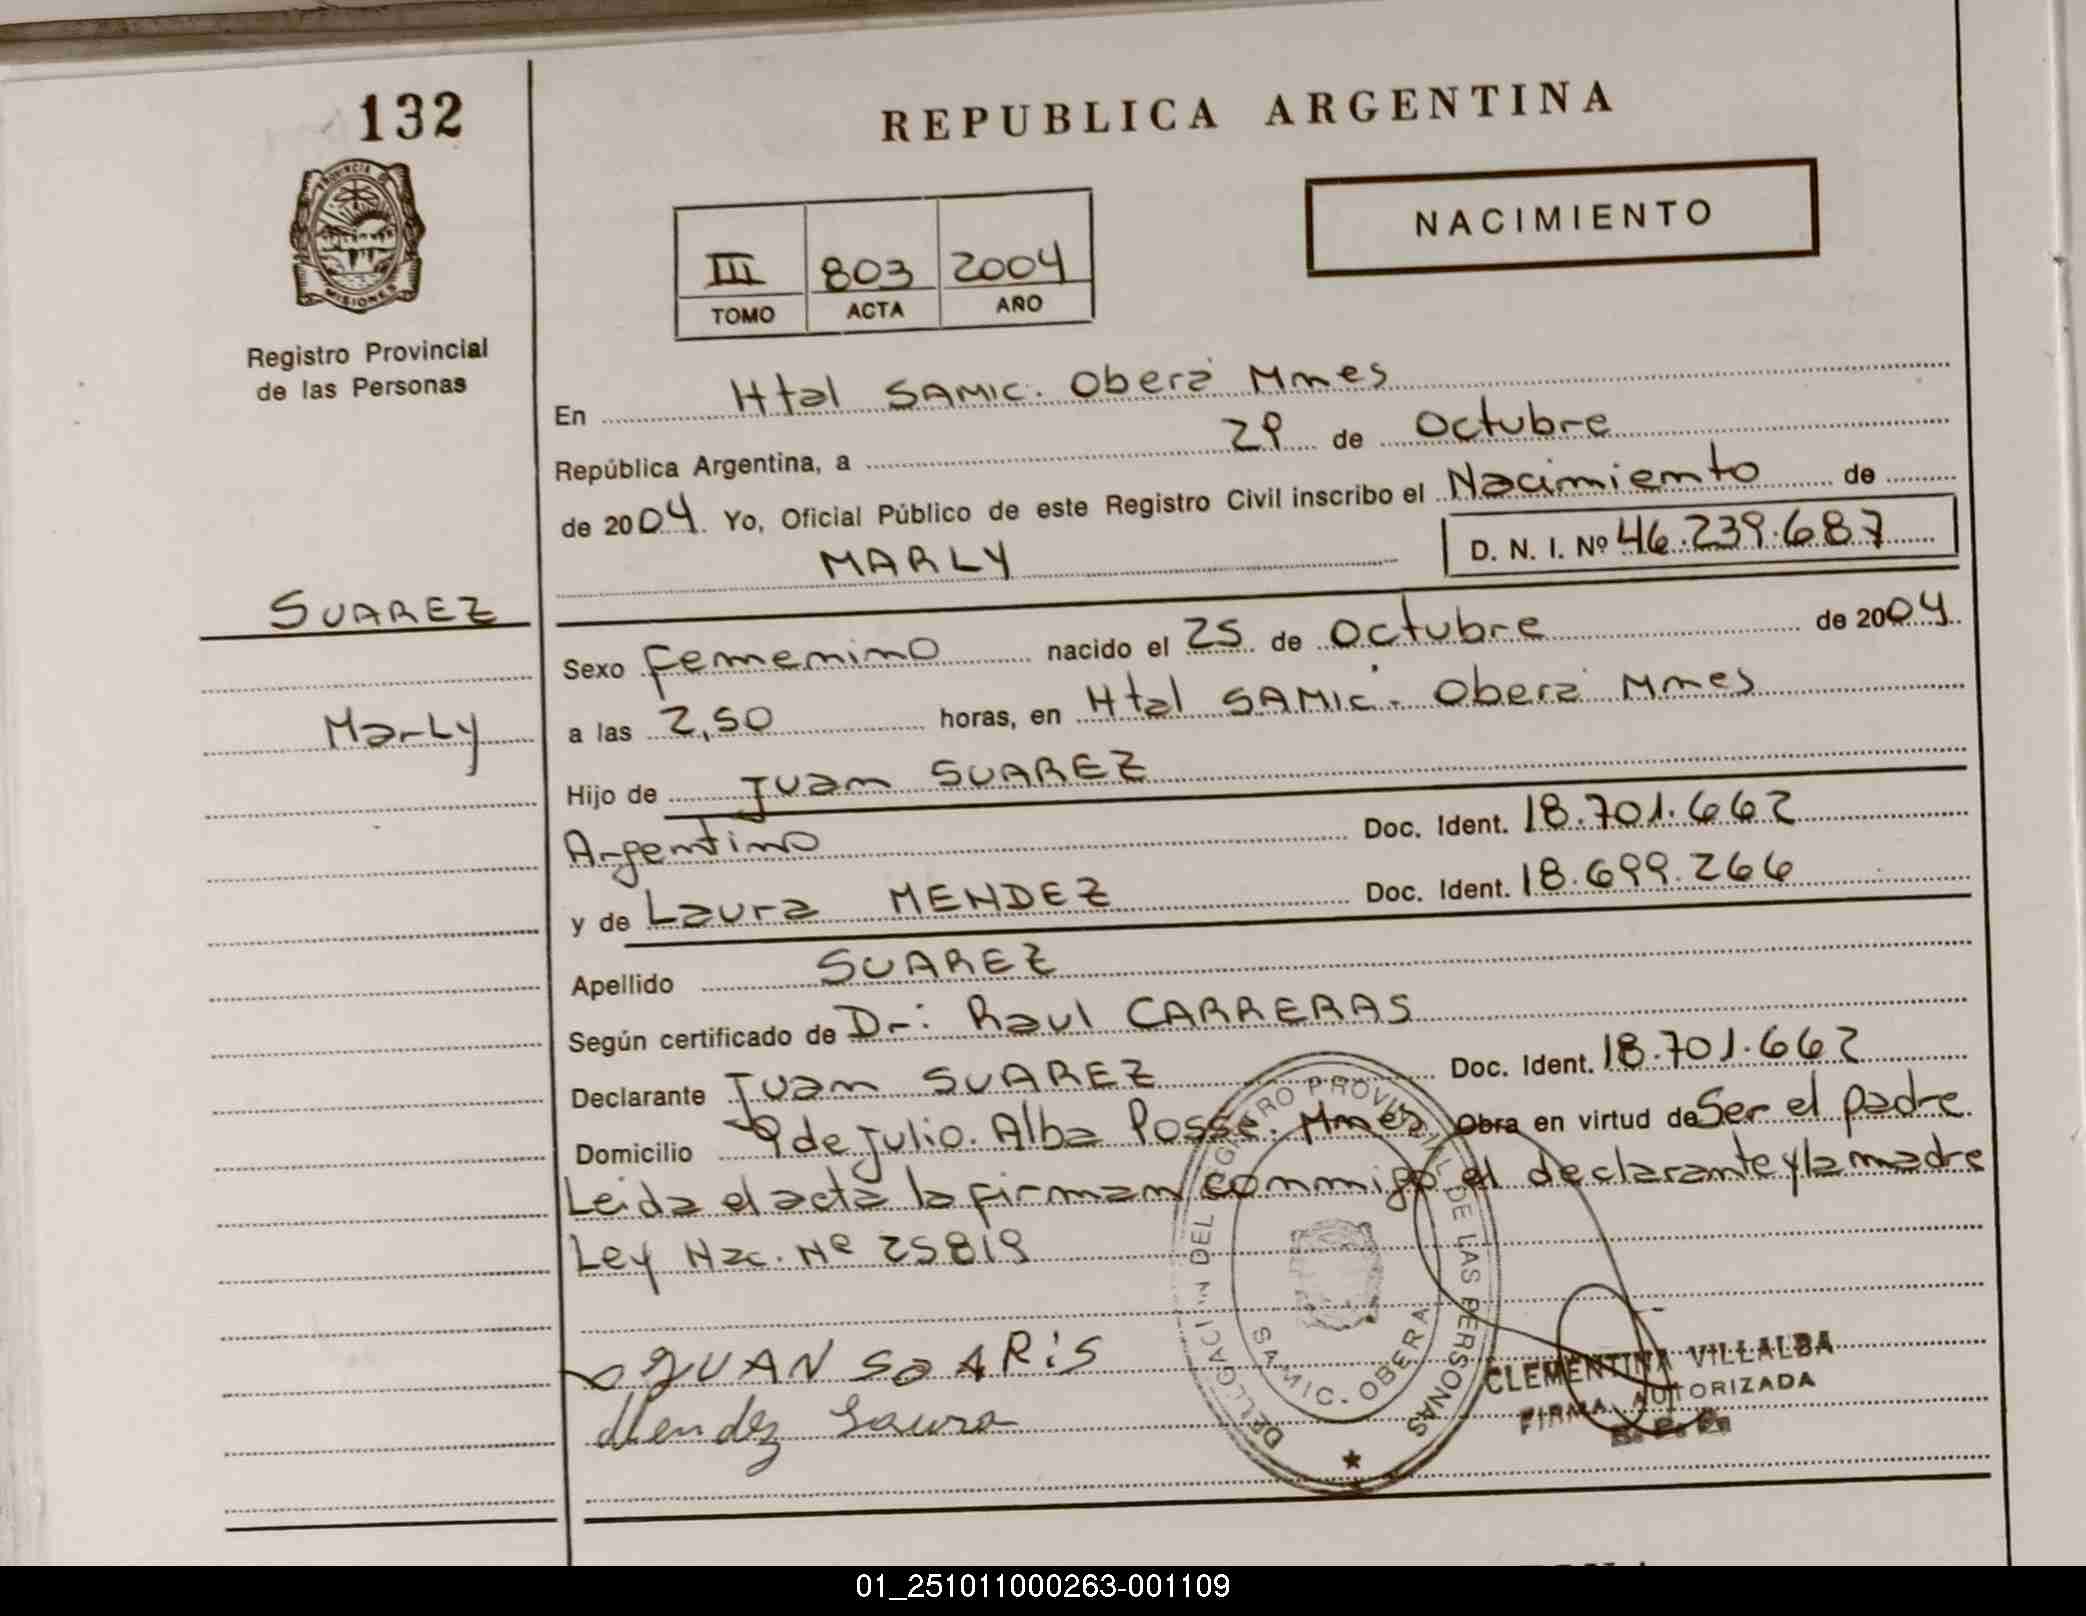 132
REPUBLICA ARGENTINA
PROVINCIA DE
MISIONES
Registro Provincial
de las Personas
NACIMIENTO
III 803 2004
TOMO ACTA AÑO
En Htal SAMIC. Oberá Mnes
República Argentina, a 29 de Octubre
de 2004. Yo, Oficial Público de este Registro Civil inscribo el Nacimiento de
MARLY D. N. I. Nº 46.239.687
SUAREZ
Marly
Sexo femenino nacido el 25 de Octubre de 2004
a las 2,50 horas, en Htal SAMIC. Oberá Mnes
Hijo de Juan SUAREZ
Argentino Doc. Ident. 18.701.662
y de Laura MENDEZ Doc. Ident. 18.699.266
Apellido SUAREZ
Según certificado de Dr: Raul CARRERAS
Declarante Juan SUAREZ Doc. Ident. 18.701.662
Domicilio 9 de Julio. Alba Posse. Mnes Obra en virtud de Ser el padre
Leida el acta la firman conmigo el declarante y la madre
Ley Nac. Nº 25819
JUAN SOARiS
Mendez Laura
DELEGACION DEL REGISTRO PROVINCIAL DE LAS PERSONAS
SAMIC. OBERA
CLEMENTINA VILLALBA
FIRMA AUTORIZADA
01_251011000263-001109